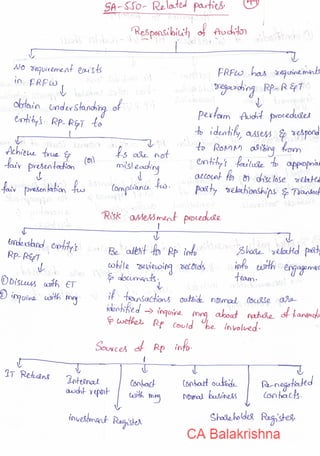 SA-550- Related parties
Responsibility of Auditor
No requirement exists
in FRFW
obtain understanding of
entity's RP-R&T to
Achieve true & fair presentation (or) f.s are not misleading
fair presentation fw compliance fw.
FRFW has requirements
regarding RP-R&T
perform Audit procedures
to identify, assess & respond
to ROMM arising from
entity's failure to appropriately
account for or disclose related
party relationships & Transact
Risk assessment procedure
Understand entity's
RP-R&T
① Discuss with ET
② inquire with mng
Be alert for RP info
while reviewing records
& documents.
if transactions outside normal course are
identified → inquire mng about nature of transac
& whether RP could be involved.
Share related party
info with engagement
team.
Sources of RP info
IT Returns
Internal
audit report
Contract
with mng
Contract outside
normal business
Re-negotiated
contracts.
investment Register
Shareholder Register
CA Balakrishna